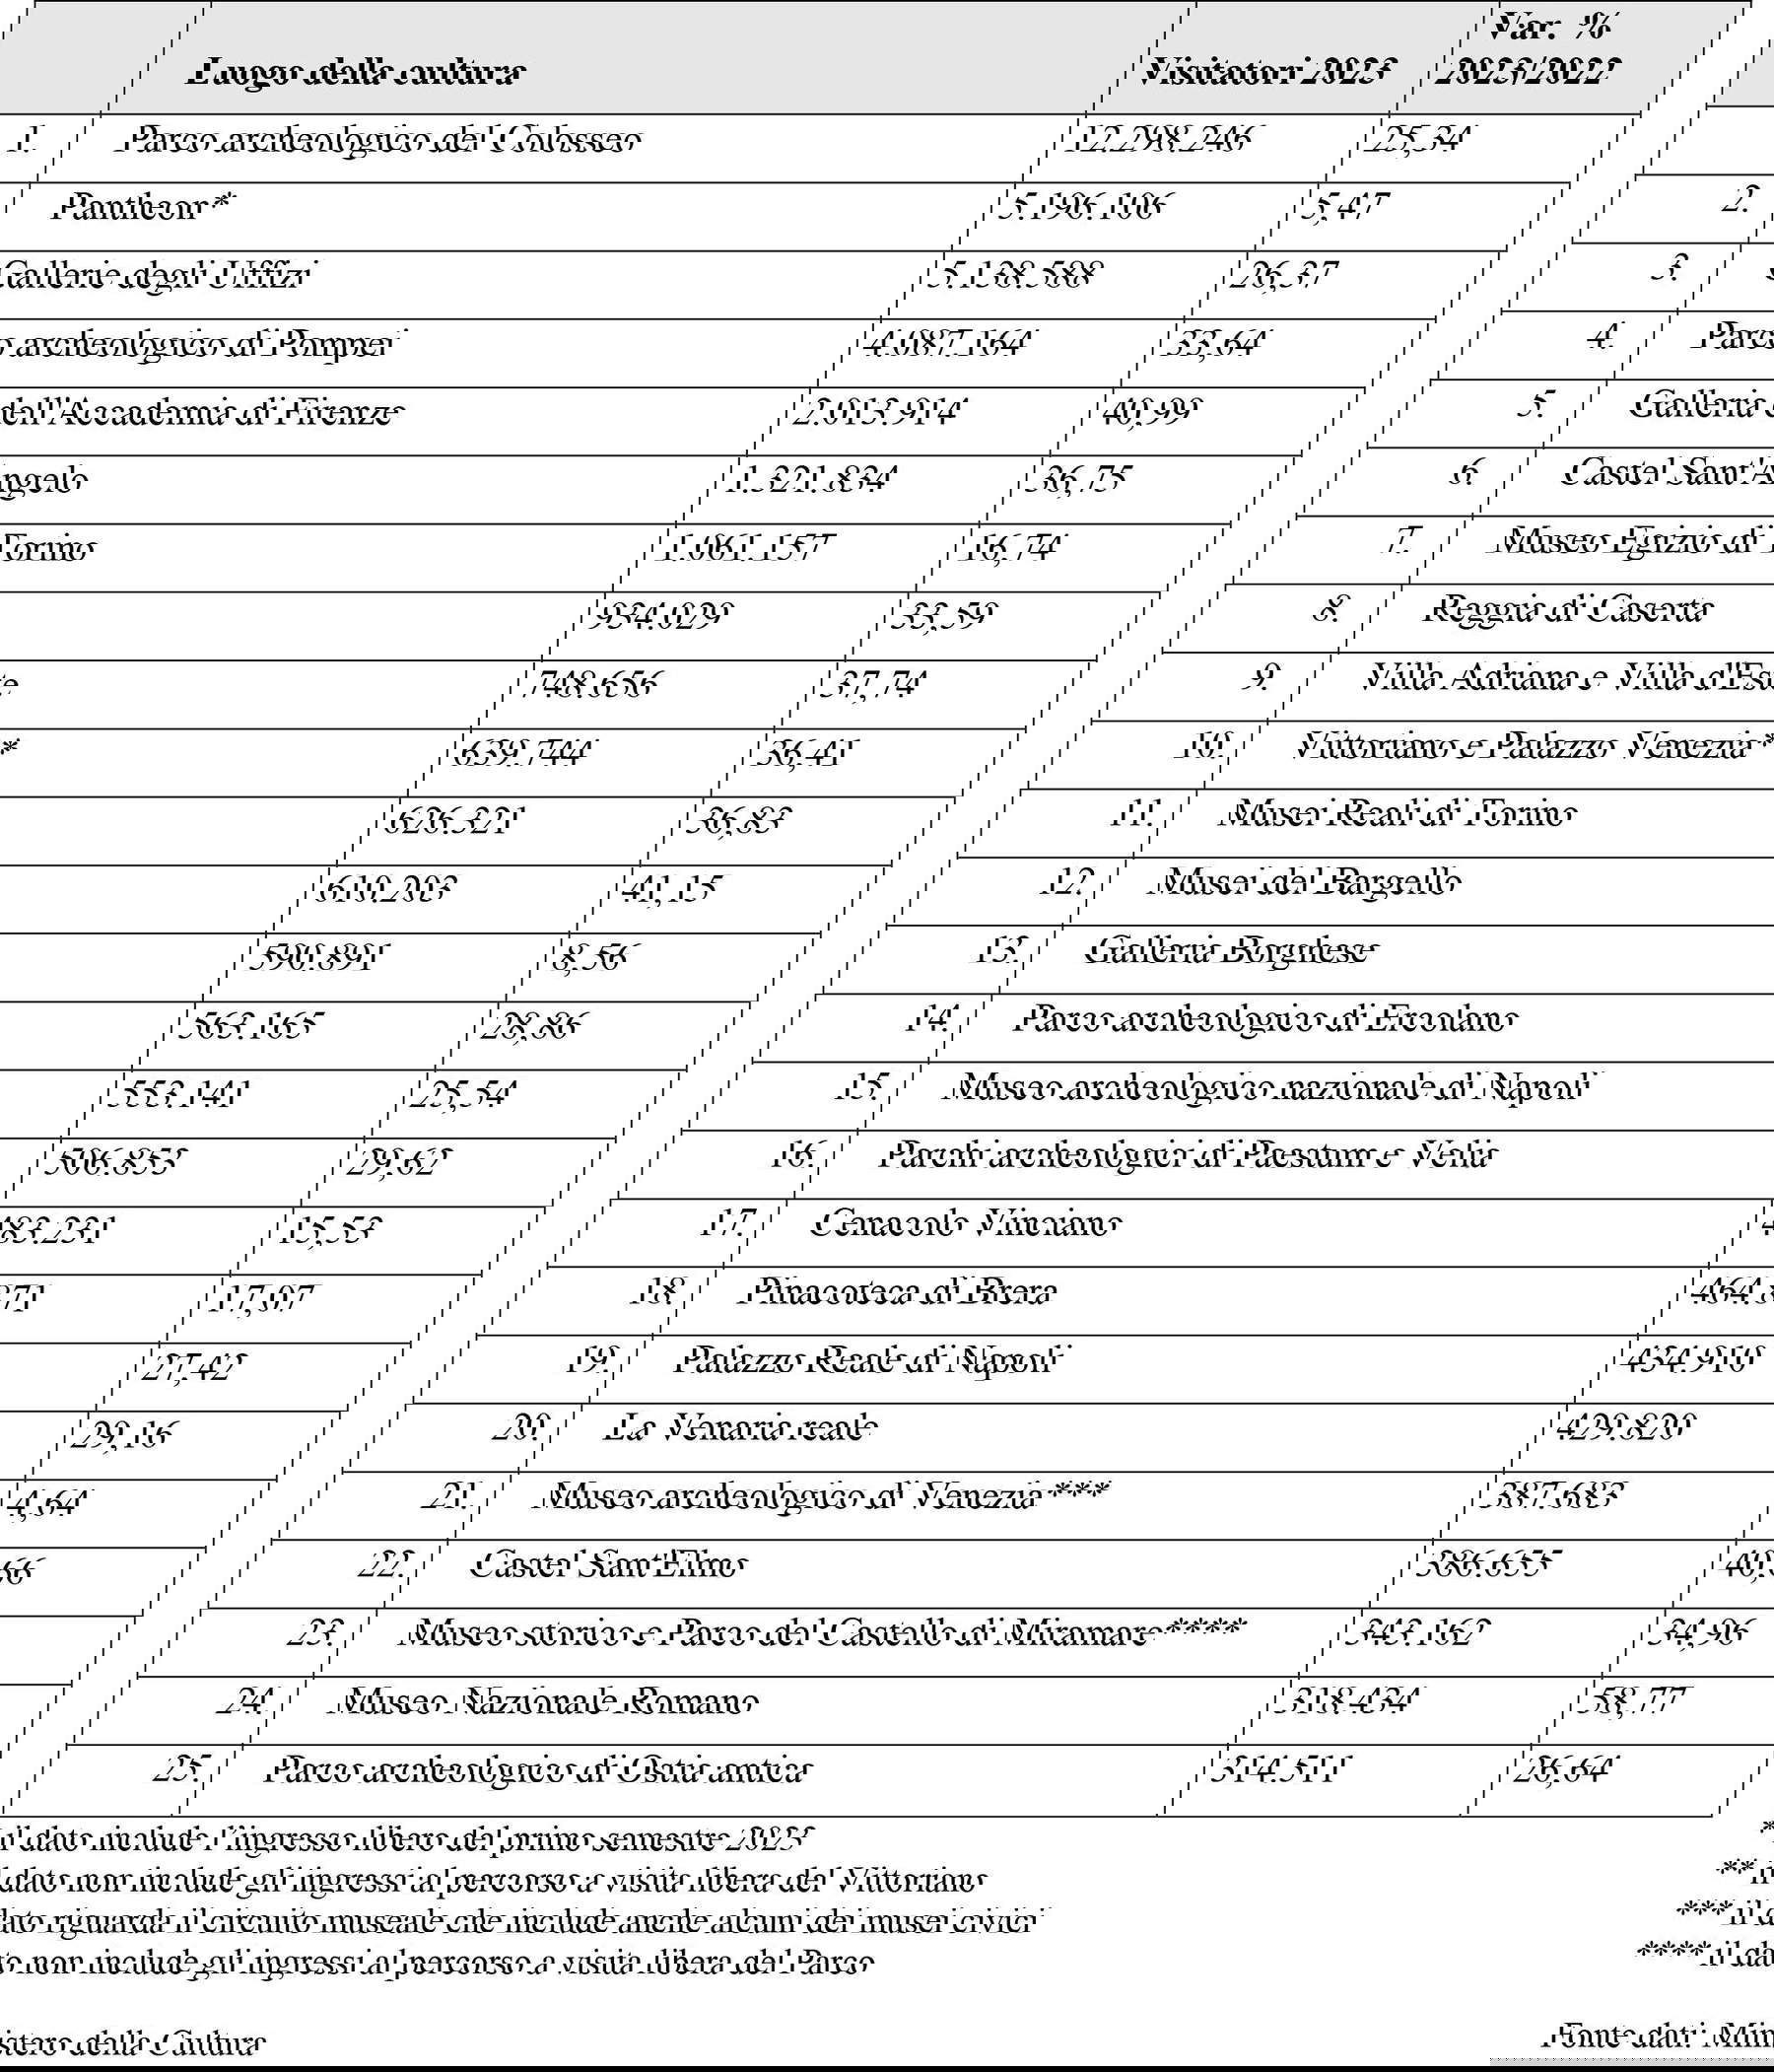 Luogo della cultura Visitatori 2023 Var. % 2023/2022
1. Parco archeologico del Colosseo 12.298.246 25,34
2. Pantheon* 5.196.106 5,47
3. Gallerie degli Uffizi 5.138.588 26,37
4. Parco archeologico di Pompei 4.087.164 33,64
5. Galleria dell'Accademia di Firenze 2.013.914 40,99
6. Castel Sant'Angelo 1.321.834 36,75
7. Museo Egizio di Torino 1.061.157 16,74
8. Reggia di Caserta 934.029 33,59
9. Villa Adriana e Villa d'Este 748.656 37,74
10. Vittoriano e Palazzo Venezia** 639.744 36,41
11. Musei Reali di Torino 626.321 36,83
12. Musei del Bargello 610.203 41,15
13. Galleria Borghese 590.891 8,56
14. Parco archeologico di Ercolano 563.165 28,86
15. Museo archeologico nazionale di Napoli 553.141 25,54
16. Parchi archeologici di Paestum e Velia 506.853 29,62
17. Cenacolo Vinciano 483.231 15,53
18. Pinacoteca di Brera 17,07
19. Palazzo Reale di Napoli 454.910 27,42
20. La Venaria reale 429.820 29,16
21. Museo archeologico di Venezia *** 387.683 4,64
22. Castel Sant'Elmo 386.655
23. Museo storico e Parco del Castello di Miramare**** 343.162 34,96
24. Museo Nazionale Romano 318.434 58,77
25. Parco archeologico di Ostia antica 314.511 26,64
* il dato include l'ingresso libero del primo semestre 2023
** il dato non include gli ingressi al percorso a visita libera del Vittoriano
*** il dato riguarda il circuito museale che include anche alcuni dei musei civici
**** il dato non include gli ingressi al percorso a visita libera del Parco
Fonte dati: Ministero della Cultura